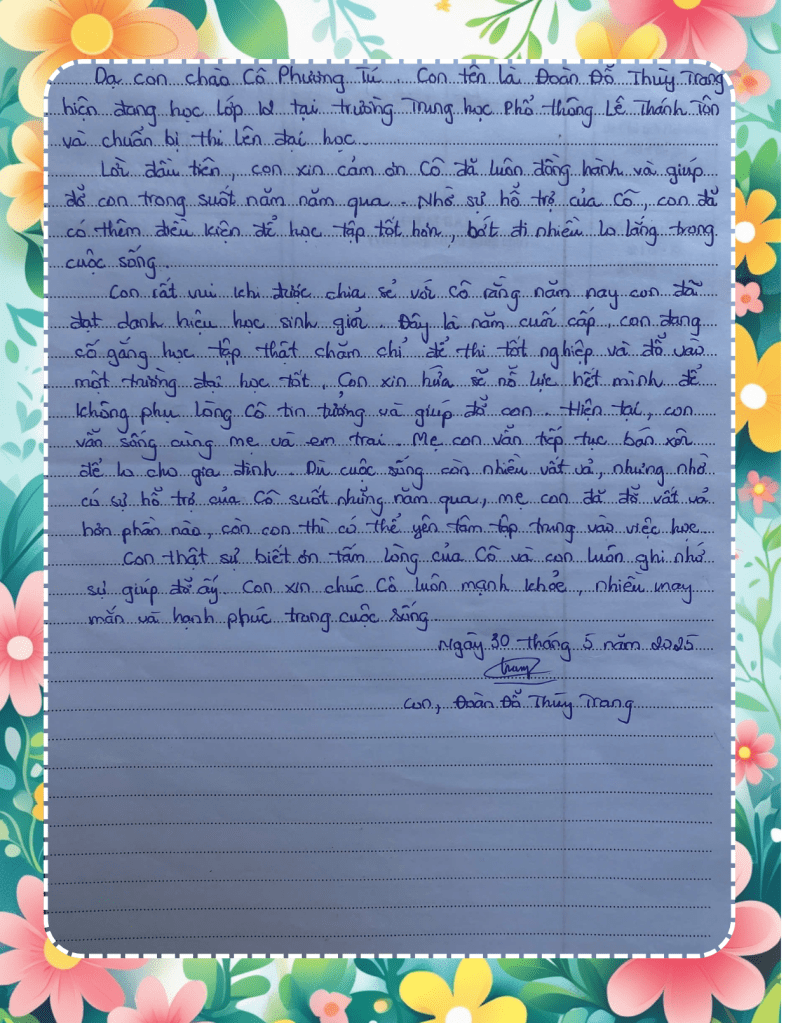 Dạ con chào Cô Phương Tú. Con tên là Đoàn Đỗ Thùy Trang
hiện đang học lớp 12 tại trường Trung học Phổ thông Lê Thánh Tôn
và chuẩn bị thi lên đại học.
Lời đầu tiên, con xin cảm ơn Cô đã luôn đồng hành và giúp
đỡ con trong suốt năm năm qua. Nhờ sự hỗ trợ của Cô, con đã
có thêm điều kiện để học tập tốt hơn, bớt đi nhiều lo lắng trong
cuộc sống.
Con rất vui khi được chia sẻ với Cô rằng năm nay con đã
đạt danh hiệu học sinh giỏi. Đây là năm cuối cấp, con đang
cố gắng học tập thật chăm chỉ để thi tốt nghiệp và đỗ vào
một trường đại học tốt. Con xin hứa sẽ nỗ lực hết mình để
không phụ lòng Cô tin tưởng và giúp đỡ con. Hiện tại, con
vẫn sống cùng mẹ và em trai. Mẹ con vẫn tiếp tục bán xôi
để lo cho gia đình. Dù cuộc sống còn nhiều vất vả, nhưng nhờ
có sự hỗ trợ của Cô suốt những năm qua, mẹ con đã đỡ vất vả
hơn phần nào, còn con thì có thể yên tâm tập trung vào việc học.
Con thật sự biết ơn tấm lòng của Cô và con luôn ghi nhớ
sự giúp đỡ ấy. Con xin chúc Cô luôn mạnh khỏe, nhiều may
mắn và hạnh phúc trong cuộc sống.
Ngày 30 tháng 5 năm 2025
Trang
Con, Đoàn Đỗ Thùy Trang